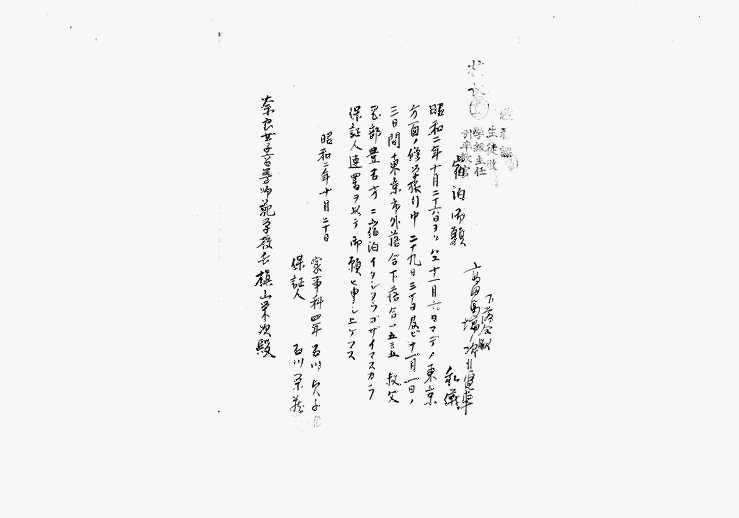 校長
生徒監
学級主任
引率教官
宿泊御願
下落合駅
高田馬場
電車
私儀
昭和二年十月二十六日ヨリ全十一月六日マデノ東京
方面ノ修学旅行中二十九日三十日及ビ十一月一日ノ
三日間東京市外落合下落合一五三五叔父
部豊吉方ニ宿泊イタシタウゴザイマスカラ
保証人連署ヲ以テ御願ヒ申シ上ゲマス
昭和二年十月二十日
家事科四年 石川
保証人 石川
奈良女子高等師範学校長槇山栄次殿